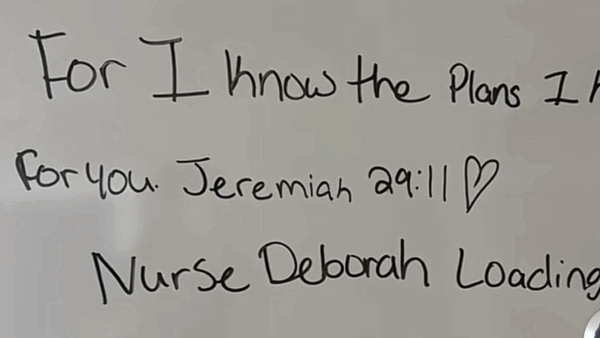 For I know the Plans I
For you. Jeremiah 29:11♡
Nurse Deborah Loading